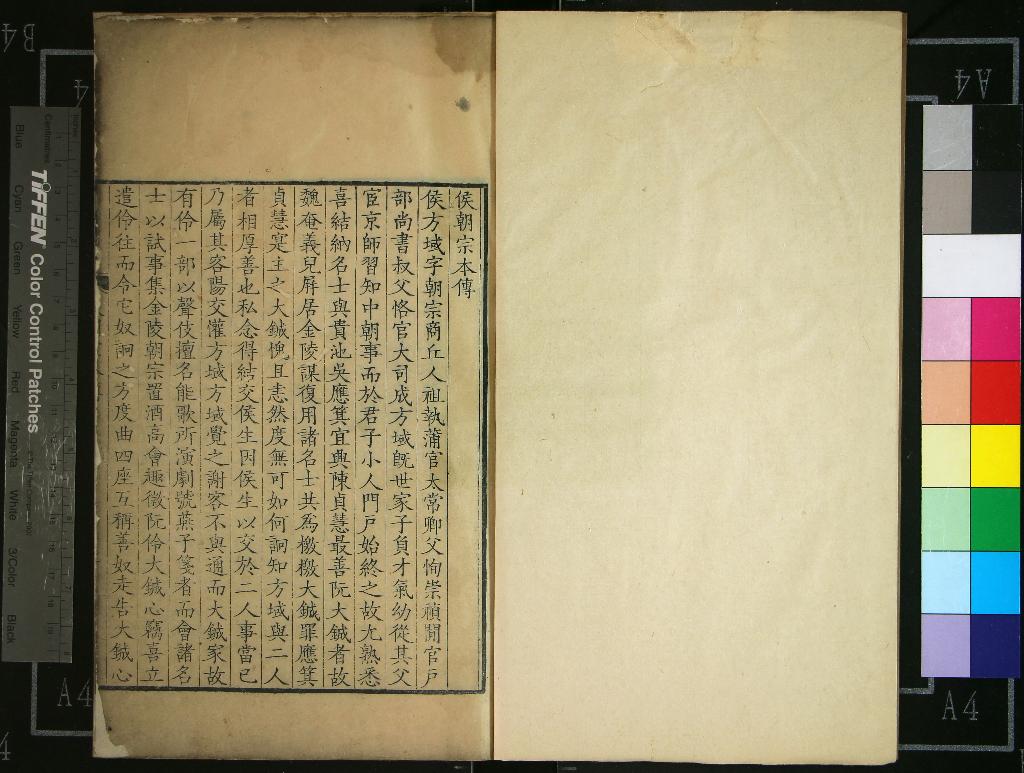 侯朝宗本傳
侯方域字朝宗商丘人祖執蒲官太常卿父恂崇禎間官戶
部尚書叔父恪官大司成方域既世家子負才氣幼從其父
宦京師習知中朝事而於君子小人門戶始終之故尤熟悉
喜結納名士與貴池吳應箕宜興陳貞慧最善阮大鋮者故
魏奄義兒屏居金陵謀復用諸名士共為檄檄大鋮罪應箕
貞慧寔主之大鋮愧且恚然度無可如何詗知方域與二人
者相厚善也私念得結交侯生因侯生以交於二人事當已
乃屬其客陽交驩方域方域覺之謝客不與通而大鋮家故
有伶一部以聲伎擅名能歌所演劇號燕子箋者而會諸名
士以試事集金陵朝宗置酒高會趣徵阮伶大鋮心竊喜立
遣伶往而令它奴詗之方度曲四座互稱善奴走告大鋮心
TIFFEN Color Control Patches
Centimetres
Inches
Blue
Cyan
Green
Yellow
Red
Magenta
White
3/Color
Black
B4
A4
A4
A4
A4